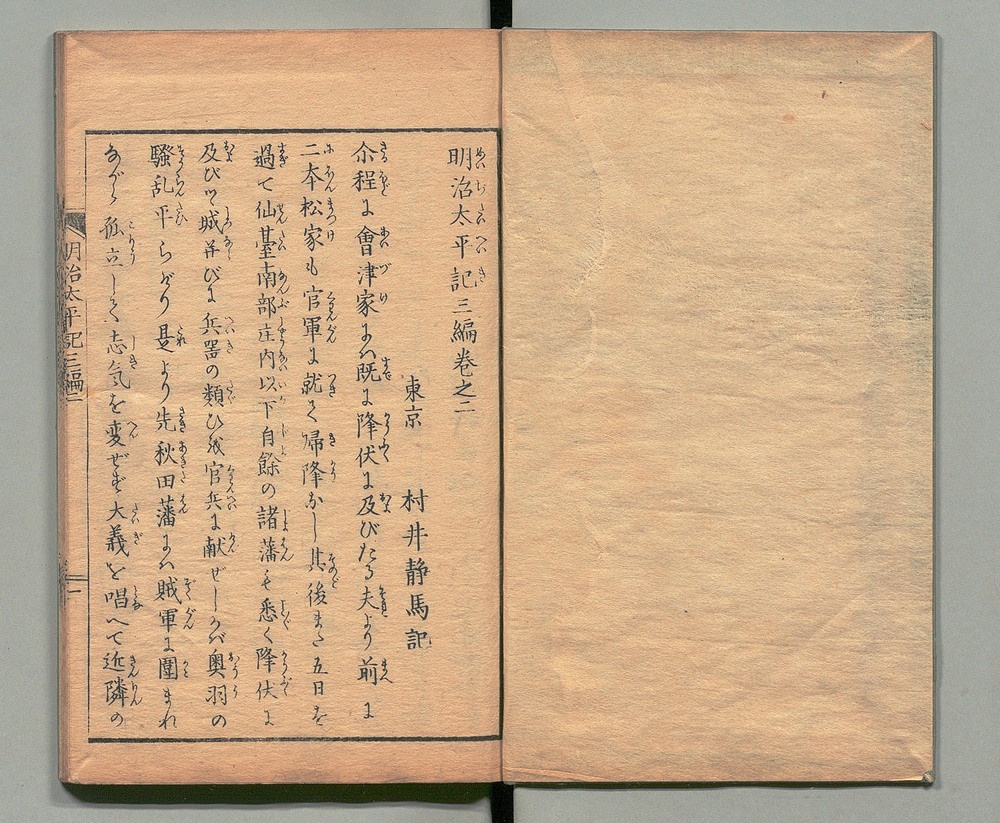 明治太平記三編巻之二
東京 村井静馬記
尒程に會津家にハ既に降伏に及びたる夫より前に
二本松家も官軍に就て帰降なし其後また五日を
過て仙臺南部庄内以下自餘の諸藩も悉く降伏に
及びて城并びに兵器の類ひを官兵に献ぜしかバ奥羽の
騒乱平らげり是より先秋田藩にハ賊軍に圍まれ
ながら孤立して志気を変ぜず大義を唱へて近隣の
明治太平記三編二
一